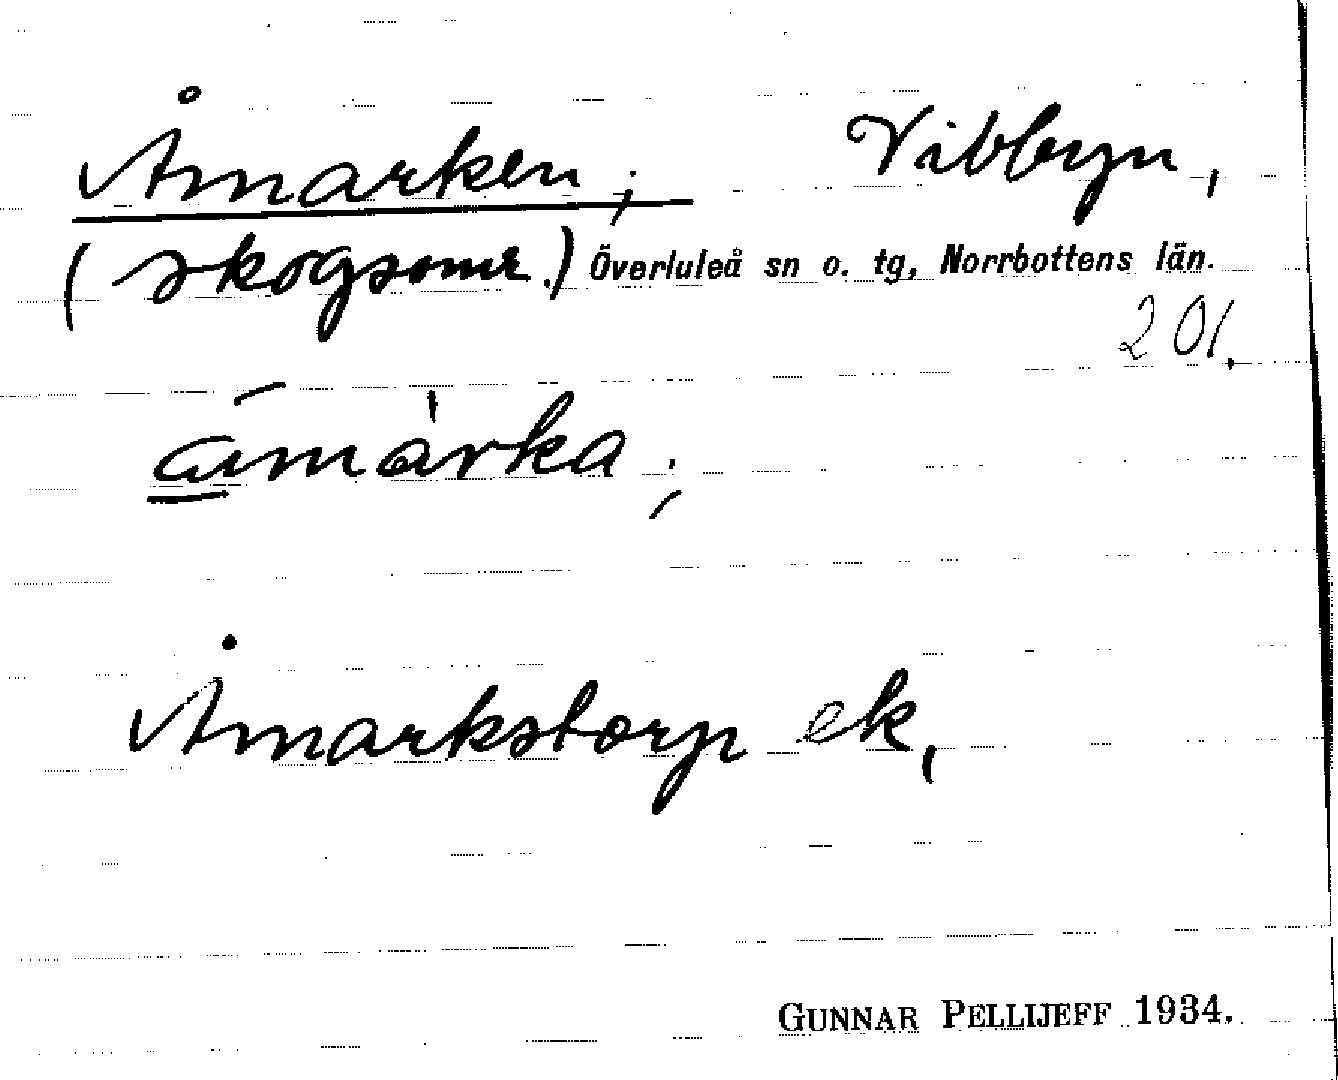 Åmarken; Vibbyn,
(skogsomr.) Överluleå sn o. tg, Norrbottens län.
201.
āmàrka;
Åmarkstorp ek,
GUNNAR PELLIJEFF 1934.